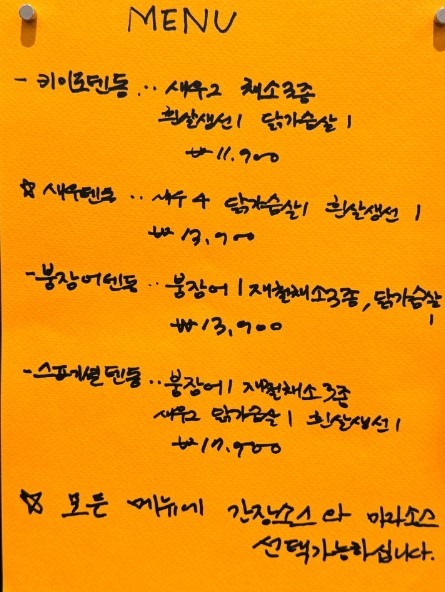 MENU
- 키이로텐동 ·· 새우2 채소3종
흰살생선1 닭가슴살1
₩11,900
☆ 새우텐동 ·· 새우4 닭가슴살1 흰살생선1
₩13,900
- 붕장어텐동 ·· 붕장어1 제철채소3종, 닭가슴살
1
₩13,900
- 스페셜텐동 ·· 붕장어1 제철채소3종
새우2 닭가슴살1 흰살생선1
₩17,900
☆ 모든 메뉴에 간장소스와 마라소스
선택가능하십니다.